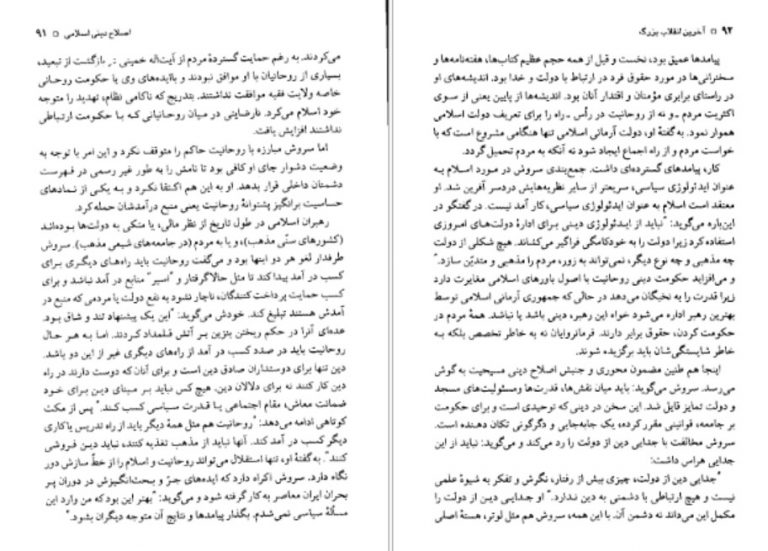 اصلاح دینی اسلامی □ ۹۱
می‌کردند. به رغم حمایت گستردهٔ مردم از آیت‌اله خمینی : ر بازگشت از تبعید،
بسیاری از روحانیان با او موافق نبودند و باایده‌های وی یا حکومت روحانی
خاصه ولایت فقیه موافقت نداشتند. بتدریج که ناکامی نظام، تهدید را متوجه
خود اسلام می‌کرد. نارضایتی در میان روحانیانی که با حکومت ارتباطی
نداشتند افزایش یافت.
اما سروش مبارزه با روحانیت حاکم را متوقف نکرد و این امر با توجه به
وضعیت دشوار جای او کافی بود تا نامش را به طور غیر رسمی در فهرست
دشمنان داخلی قرار بدهد. او به این هم اکتفا نکرد و به یکی از نمادهای
حساسیت برانگیز پشتوانهٔ روحانیت یعنی منبع درآمدشان حمله کرد.
رهبران اسلامی در طول تاریخ از نظر مالی، یا متکی به دولت‌ها بوده‌اند
(کشورهای سنّی مذهب)، و یا به مردم (در جامعه‌های شیعی مذهب). سروش
طرفدار لغو هر دو اینها بود و می‌گفت روحانیت باید راه‌های دیگری برای
کسب در آمد پیدا کند تا مثل حالاگرفتار و "اسیر" منابع در آمد نباشد و برای
کسب حمایت پرداخت کنندگان، ناچار نشود به نفع دولت یا مردمی که منبع در
آمدش هستند تبلیغ کند. خودش می‌گوید: "این یک پیشنهاد تند و شاق بود.
عده‌ای آنرا در حکم ریختن بنزین بر آتش قلمداد کردند. اما به هر حال
روحانیت باید در صدد کسب در آمد از راه‌های دیگری غیر از این دو باشد.
دین تنها برای دوستداران صادق دین است و برای آنان که دوست دارند در راه
دین کار کنند نه برای دلالان دین. هیچ کس نباید بر مبنای دین برای خود
ضمانت معاش، مقام اجتماعی یا قدرت سیاسی کسب کند." پس از مکث
کوتاهی ادامه می‌دهد: "روحانیت هم مثل همهٔ دیگر باید از راه تدریس یاکاری
دیگر کسب در آمد کند. آنها نباید از مذهب تغذیه کنند، نباید دین فروشی
کنند". به گفتهٔ او، تنها استقلال می‌تواند روحانیت و اسلام را از خطّ سازش دور
نگاه دارد. سروش اکراه دارد که ایده‌های جرّ و بحث‌انگیزش در دوران پر
بحران ایران معاصر به کار گرفته شود و می‌گوید: "بهتر این بود که من وارد این
مسألهٔ سیاسی نمی‌شدم. بگذار پیامدها و نتایج آن متوجه دیگران بشود."
۹۲ □ آخرین انقلاب بزرگ
پیامدها عمیق بود، نخست و قبل از همه حجم عظیم کتاب‌ها، هفته‌نامه‌ها و
سخنرانی‌ها در مورد حقوق فرد در ارتباط با دولت و خدا بود. اندیشه‌های او
در راستای برابری مؤمنان و اقتدار آنان بود. اندیشه‌ها از پایین یعنی از سوی
اکثریت مردم ـ و نه از روحانیت در رأس ـ راه را برای تعریف دولت اسلامی
هموار نمود. به گفتهٔ او، دولت آرمانی اسلامی تنها هنگامی مشروع است که با
خواست مردم و از راه اجماع ایجاد شود نه آنکه به مردم تحمیل گردد.
کار، پیامدهای گسترده‌ای داشت. جمع‌بندی سروش در مورد اسلام به
عنوان ایدئولوژی سیاسی، سریعتر از سایر نظریه‌هایش دردسر آفرین شد. او
معتقد است اسلام به عنوان ایدئولوژی سیاسی، کار آمد نیست. درگفتگو در
این‌باره می‌گوید: "نباید از ایدئولوژی دینی برای ادارهٔ دولت‌های امروزی
استفاده کرد زیرا دولت را به خودکامگی فراگیر می‌کشاند. هیچ شکلی از دولت
چه مذهبی و چه نوع دیگر، نمی‌تواند به زور، مردم را مذهبی و متدیّن سازد."
و می‌افزاید حکومت دینی روحانیت با اصول باورهای اسلامی مغایرت دارد
زیرا قدرت را به نخبگان می‌دهد در حالی که جمهوری آرمانی اسلامی توسط
بهترین رهبر اداره می‌شود خواه این رهبر، دینی باشد یا نباشد. همهٔ مردم در
حکومت کردن، حقوق برابر دارند. فرمانروایان نه به خاطر تخصص بلکه به
خاطر شایستگی‌شان باید برگزیده شوند.
اینجا هم طنین مضمون محوری و جنبش اصلاح دینی مسیحیت به گوش
می‌رسد. سروش می‌گوید: باید میان نقش‌ها، قدرت‌ها ومسئولیت‌های مسجد
و دولت تمایز قایل شد. این سخن در دینی که توحیدی است و برای حکومت
بر جامعه، قوانینی مقرر کرده، یک جابه‌جایی و دگرگونی تکان دهنده است.
سروش مخالفت با جدایی دین از دولت را رد می‌کند و می‌گوید: نباید از این
جدایی هراس داشت:
"جدایی دین از دولت، چیزی بیش از رفتار، نگرش و تفکر به شیوهٔ علمی
نیست و هیچ ارتباطی با دشمنی به دین ندارد." او جدایی دین از دولت را
مکمل این می‌داند نه دشمن آن. با این همه، سروش هم مثل لوتر، هستهٔ اصلی